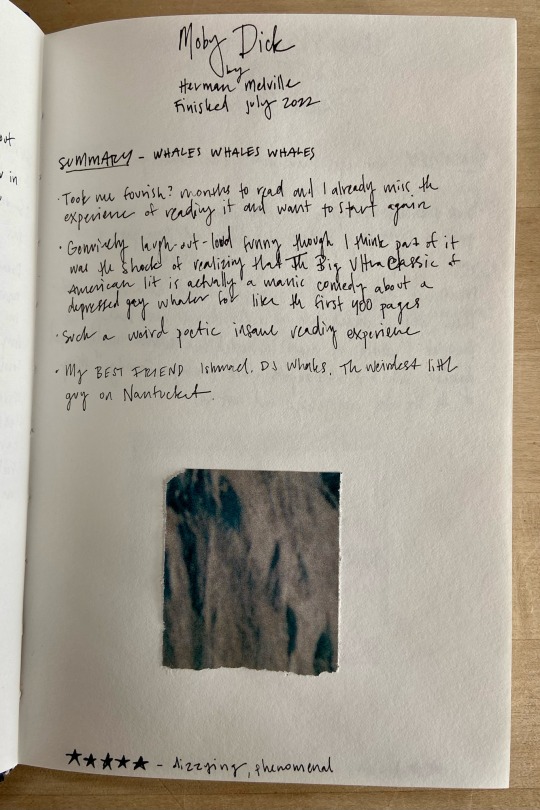 Moby Dick
by
Herman Melville
Finished july 2022
out
in
SUMMARY - WHALES WHALES WHALES
· Took me fourish? months to read and I already miss the
experience of reading it and want to start again
· Genuinely laugh-out-loud funny though I think part of it
was the shock of realizing that The Big Ultra Classic of
American lit is actually a manic comedy about a
depressed gay whaler for like the first 400 pages
· Such a weird poetic insane reading experience
· My BEST FRIEND Ishmael. DJ Whales. The weirdest little
guy on Nantucket.
★★★★★ - dizzying, phenomenal